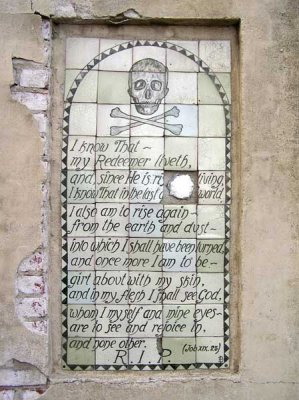 I know That ~
my Redeemer liveth,
and, since He is living,
I know That in the last world
I also am to rise again ~
from the earth and dust ~
into which I shall have been turned,
and once more I am to be ~
girt about with my skin,
and in my flesh I shall see God,
whom I myself and mine eyes ~
are to see and rejoice in,
and none other. (Job xix. 25)
R.I.P.